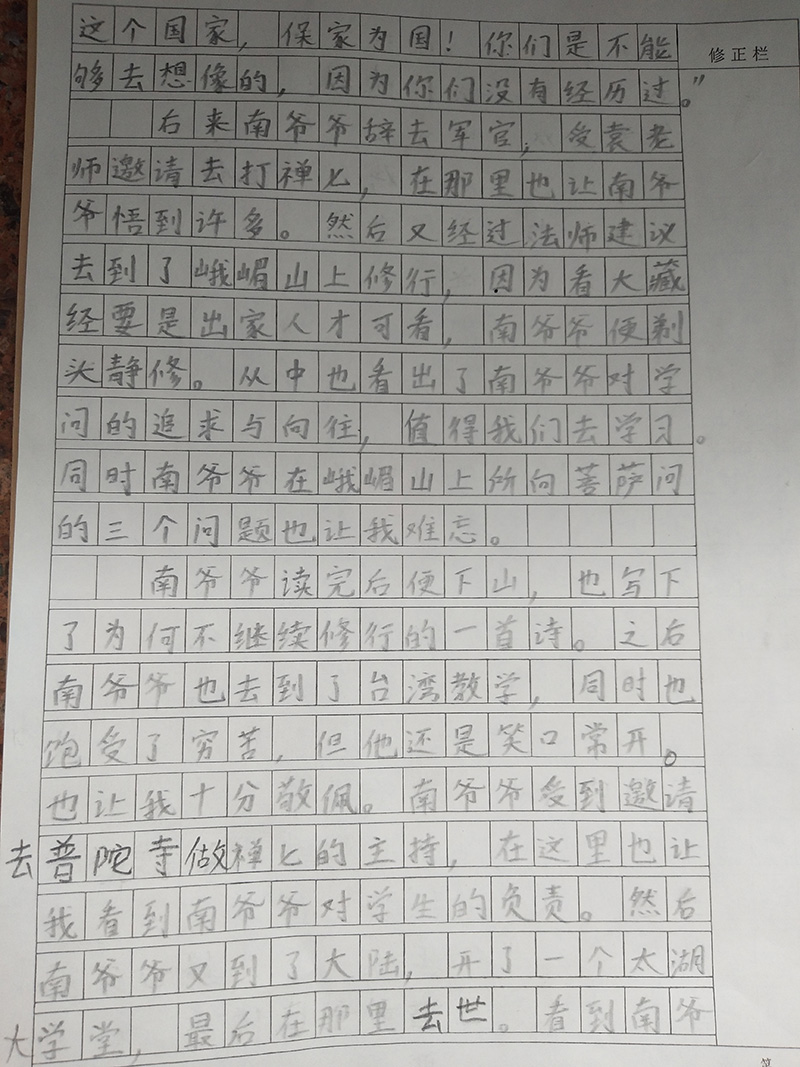 这个国家，保家为国！你们是不能
修正栏
够去想像的，因为你们没有经历过。”
右来南爷爷辞去军官，受袁老
师邀请去打禅七，在那里也让南爷
爷悟到许多。然后又经过法师建议
去到了峨嵋山上修行，因为看大藏
经要是出家人才可看，南爷爷便剃
头静修。从中也看出了南爷爷对学
问的追求与向往，值得我们去学习。
同时南爷爷在峨嵋山上所向菩萨问
的三个问题也让我难忘。
南爷爷读完后便下山，也写下
了为何不继续修行的一首诗。之后
南爷爷也去到了台湾教学，同时也
饱受了穷苦，但他还是笑口常开。
也让我十分敬佩。南爷爷受到邀请
去普陀寺做禅七的主持，在这里也让
我看到南爷爷对学生的负责。然后
南爷爷又到了大陆，开了一个太湖
大学堂，最后在那里去世。看到南爷